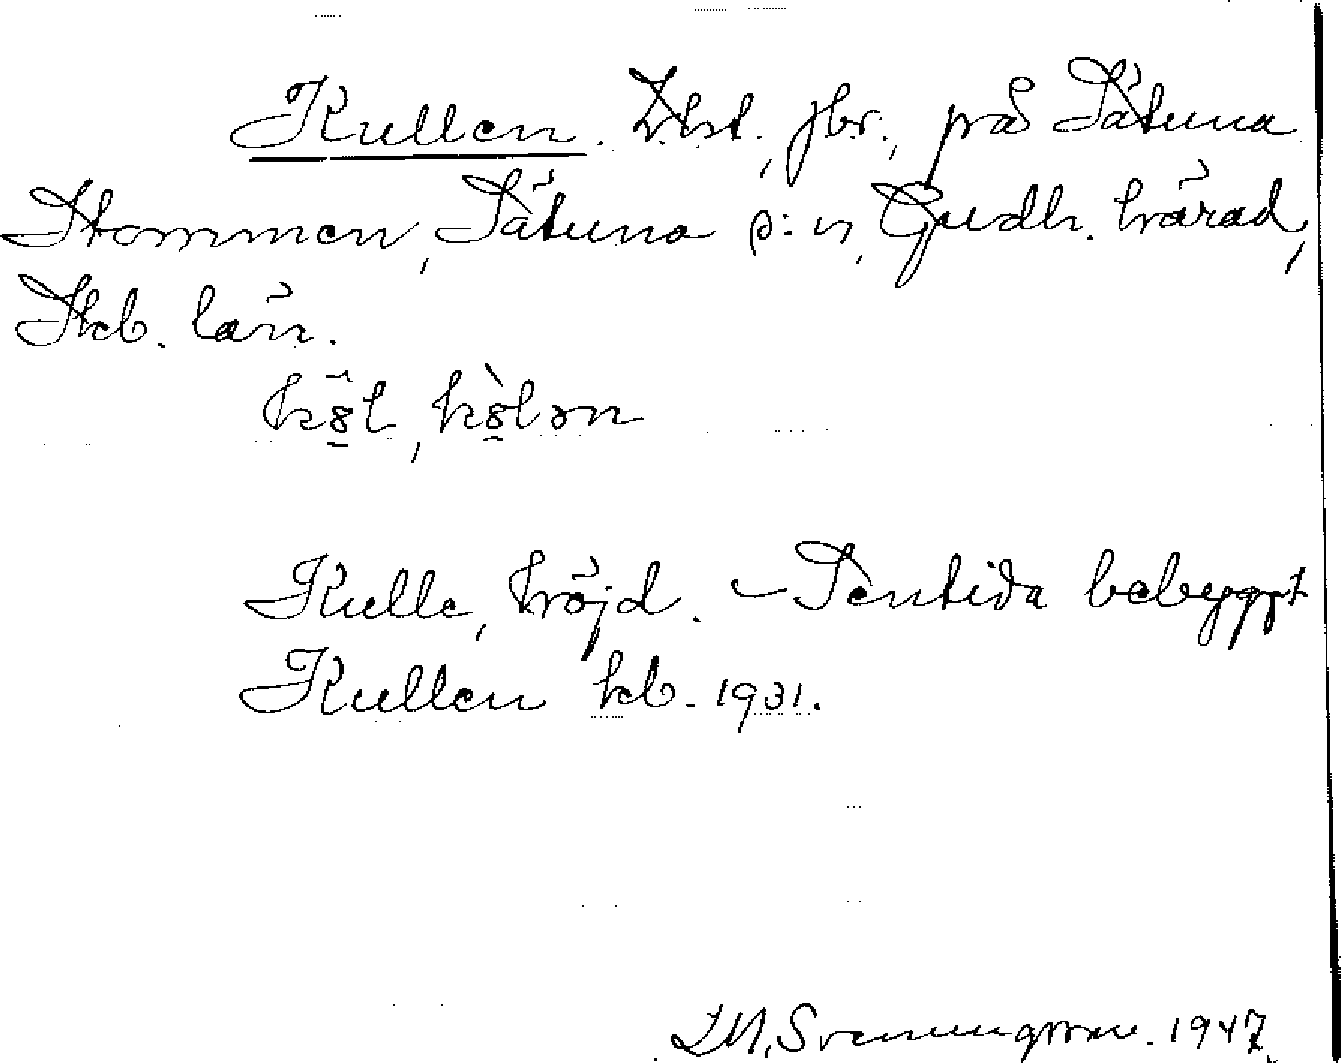 Kullen. Lht., jbr., på Sätuna
Stommen, Sätuna s:n, Gudh. härad,
Skb. län.
Kulle, höjd. – Sentida bebyggt
Kullen kb. 1931.
Svenungsson. 1947